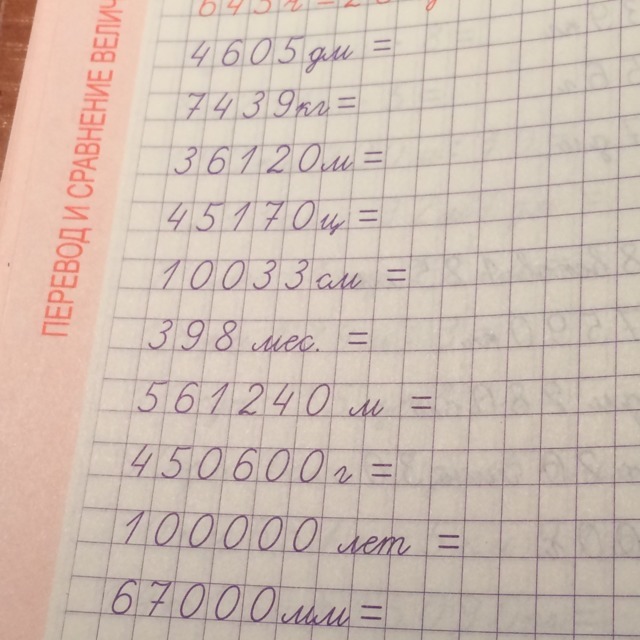 645ч = 2
4605 дм =
7439 кг =
36120 м =
45170 ц =
10033 см =
398 мес. =
561240 м =
450600 г =
100000 лет =
67000 мм =
ПЕРЕВОД И СРАВНЕНИЕ ВЕЛИЧ